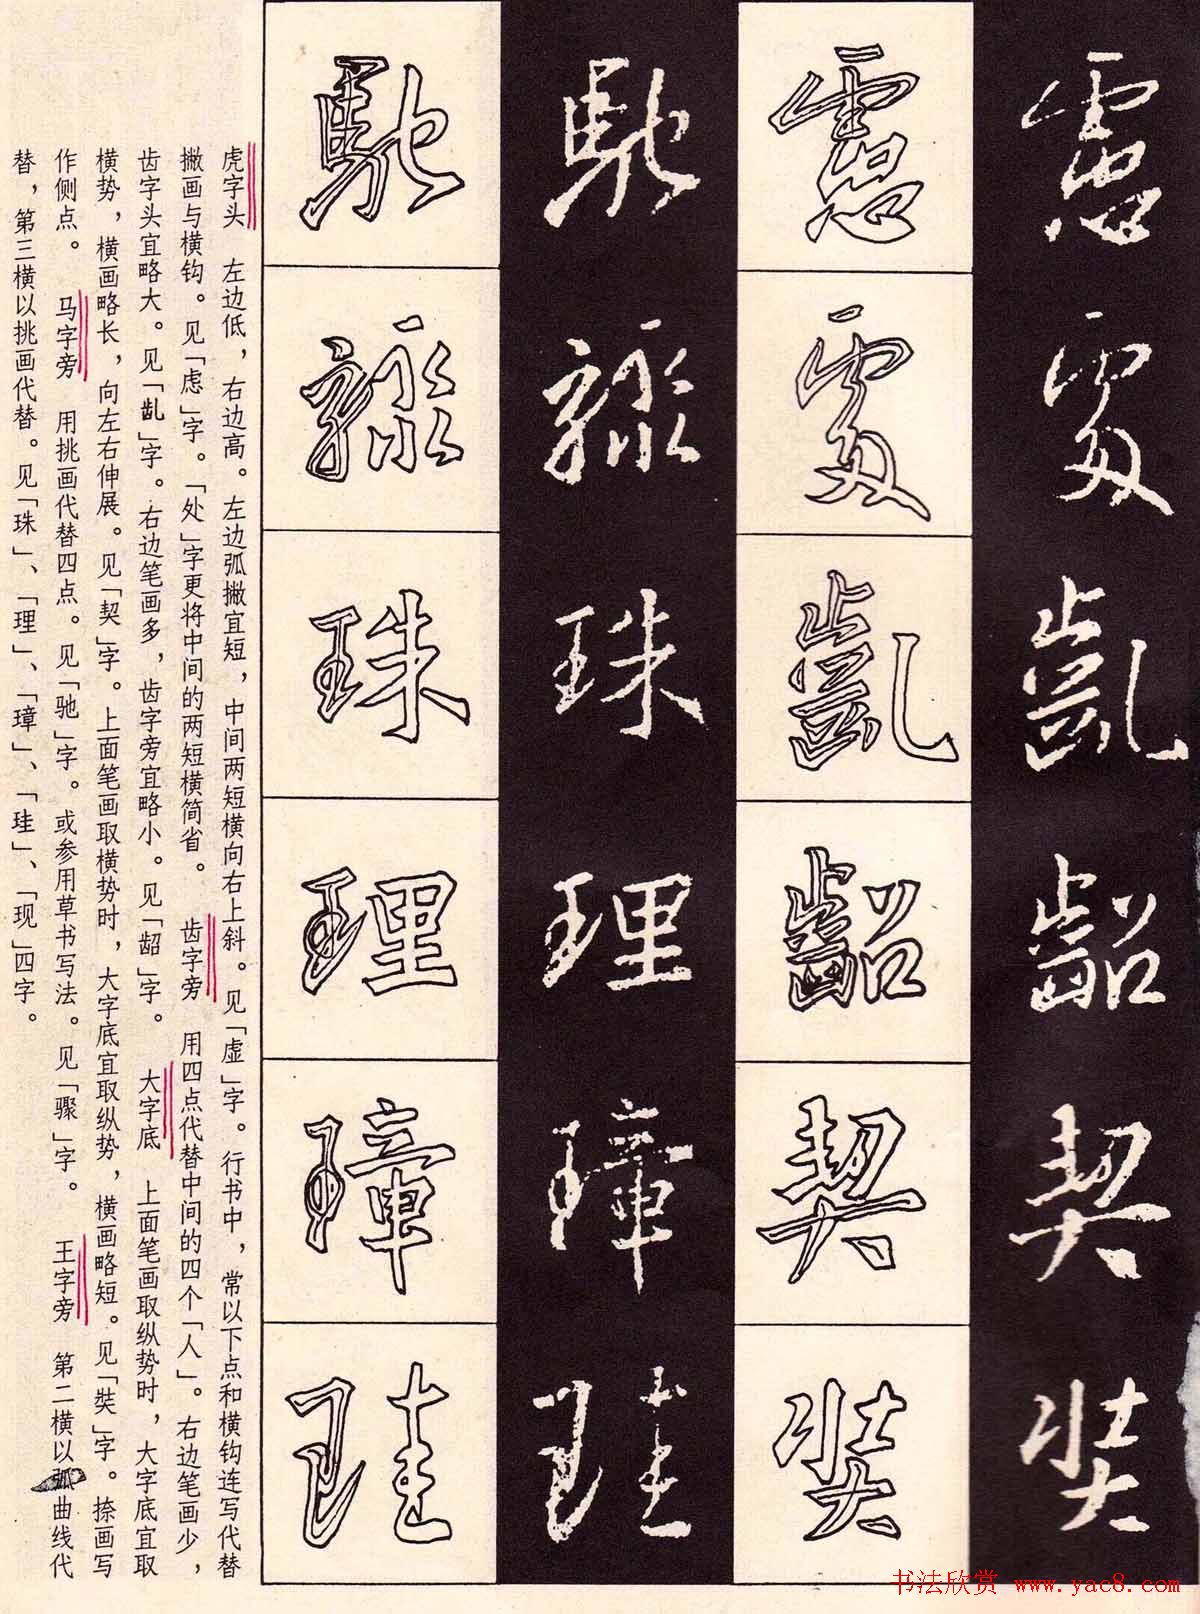 慮
處
齔
齠
契
奘
慮
處
齔
齠
契
奘
馳
珠
理
璋
珪
馳
珠
理
璋
珪
虎字头　左边低，右边高。左边弧撇宜短，中间两短横向右上斜。见「虚」字。行书中，常以下点和横钩连写代替
撇画与横钩。见「虑」字。「处」字更将中间的两短横简省。　齿字旁　用四点代替中间的四个「人」。右边笔画少，
齿字头宜略大。见「龀」字。右边笔画多，齿字旁宜略小。见「龆」字。　大字底　上面笔画取纵势时，大字底宜取
横势，横画略长，向左右伸展。见「契」字。上面笔画取横势时，大字底宜取纵势，横画略短。见「奘」字。捺画写
作侧点。　马字旁　用挑画代替四点。见「驰」字。或参用草书写法。见「骤」字。　王字旁　第二横以弧曲线代
替，第三横以挑画代替。见「珠」、「理」、「璋」、「珪」、「现」四字。
书法欣赏 www.yac8.com